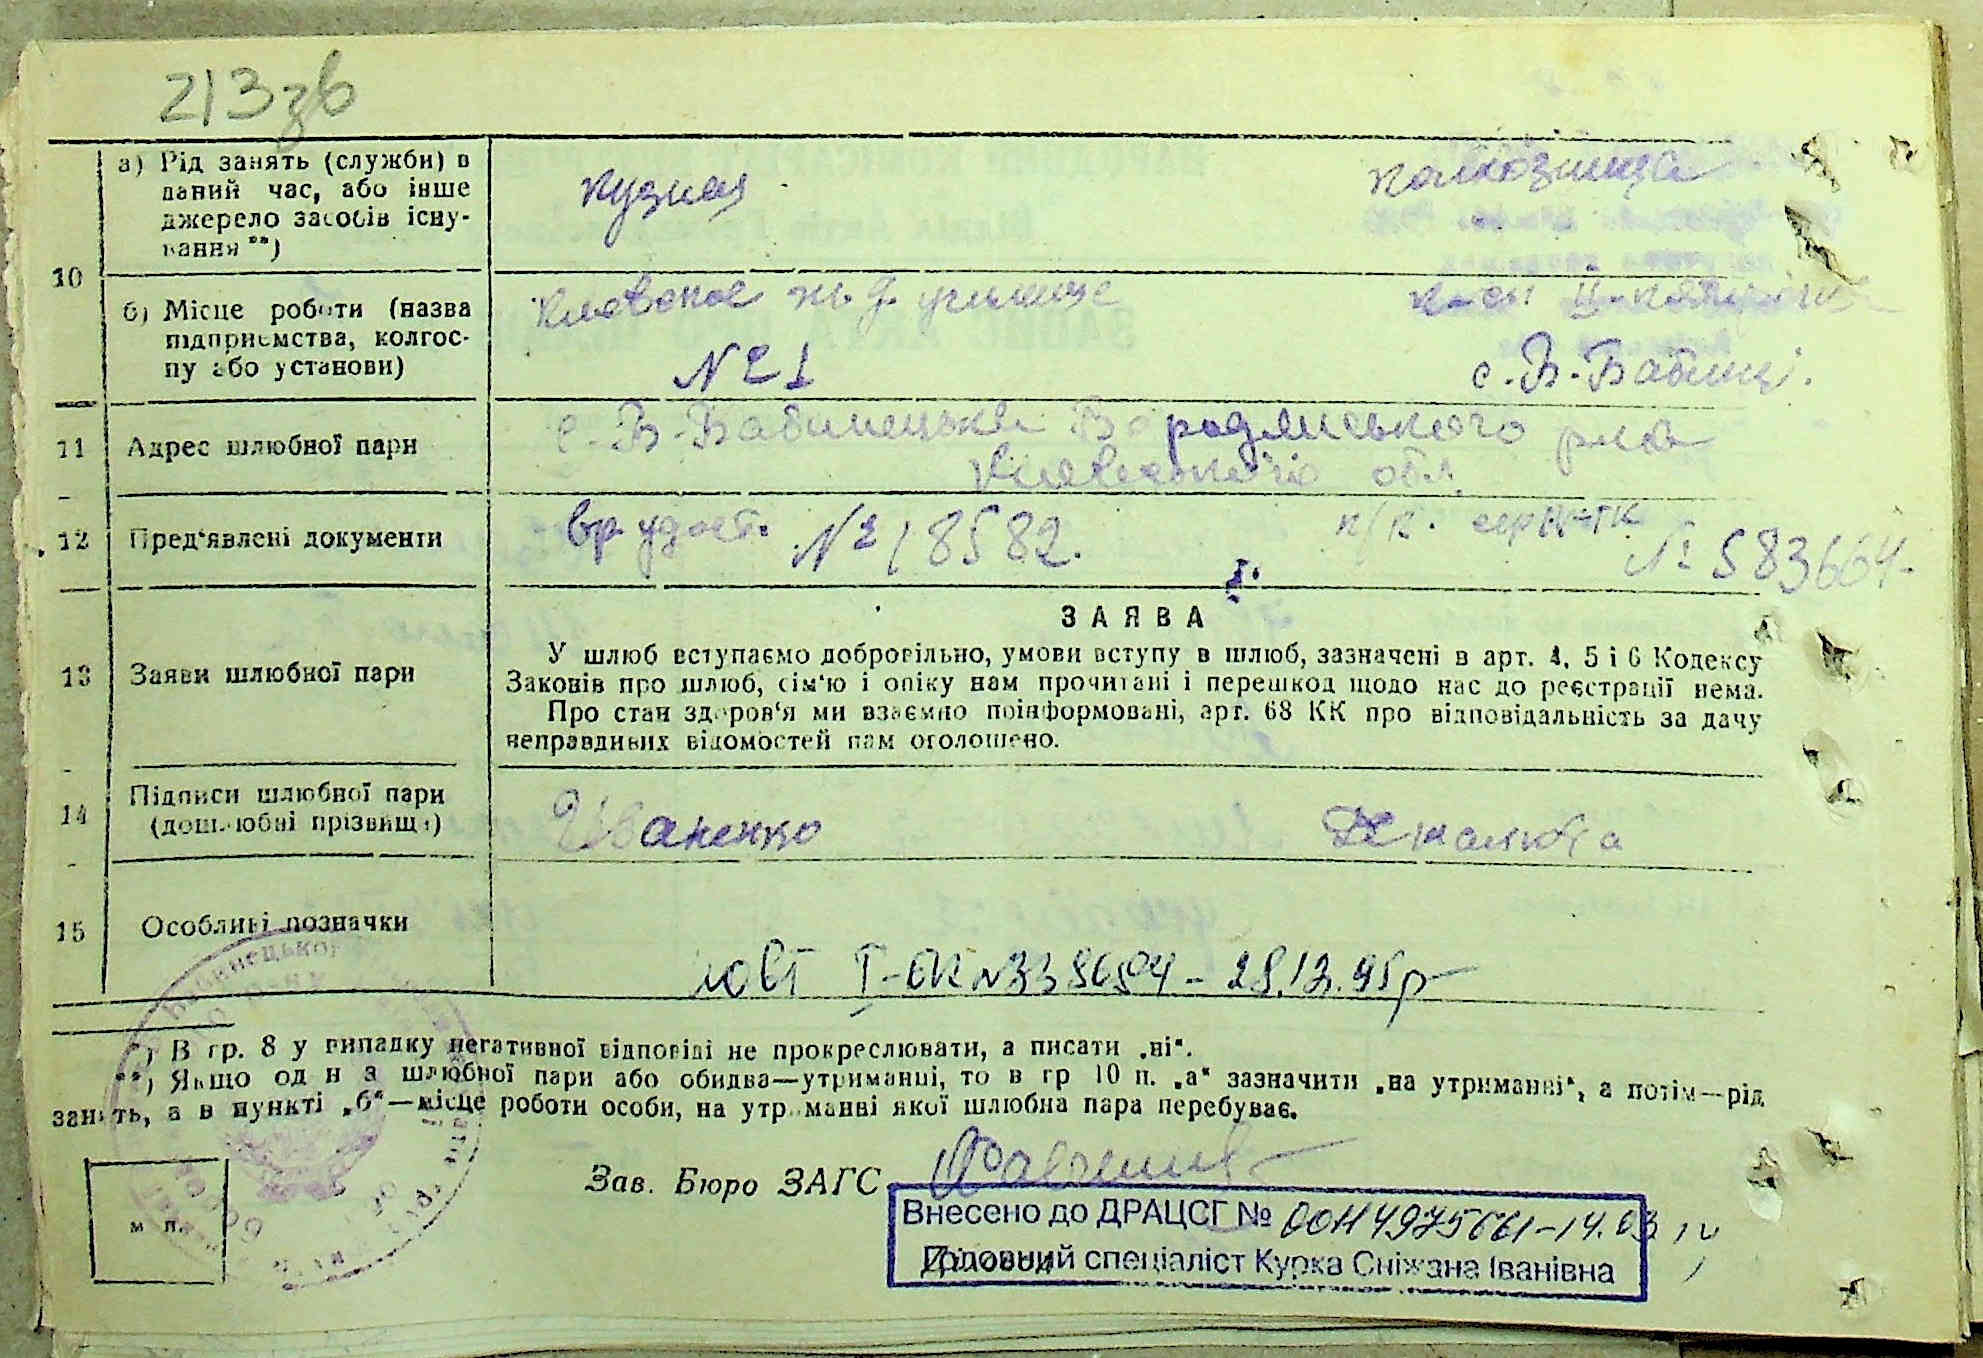 213зв
10
а) Рід занять (служби) в даний час, або інше джерело засобів існування **)
кузнец
колхозница
б) Місце роботи (назва підприємства, колгоспу або установи)
Киевское ж. д. училище
№ 1
с. В-Бабинці.
11
Адрес шлюбної пари
с. В-Бабинецька Бородянського р-на
Київського обл.
12
Пред'явлені документи
вр. удост. № 18582.
№ 583664-
13
Заяви шлюбної пари
ЗАЯВА
У шлюб вступаємо добровільно, умови вступу в шлюб, зазначені в арт. 4, 5 і 6 Кодексу
Законів про шлюб, сім'ю і опіку нам прочитані і перешкод щодо нас до реєстрації нема.
Про стан здоров'я ми взаємно поінформовані, арт. 68 КК про відповідальність за дачу
неправдивих відомостей нам оголошено.
14
Підписи шлюбної пари
(дошлюбні прізвища)
Иваненко
15
Особливі позначки
28.12.95р
*) В гр. 8 у випадку негативної відповіді не прокреслювати, а писати „ні".
**) Якщо один з шлюбної пари або обидва—утриманці, то в гр 10 п. „а" зазначити „на утриманні", а потім—рід
занять, а в пункті „б"—місце роботи особи, на утриманні якої шлюбна пара перебуває.
Зав. Бюро ЗАГС
м п.
Внесено до ДРАЦСГ № 00114975661-14.03
Головний спеціаліст Курка Сніжана Іванівна